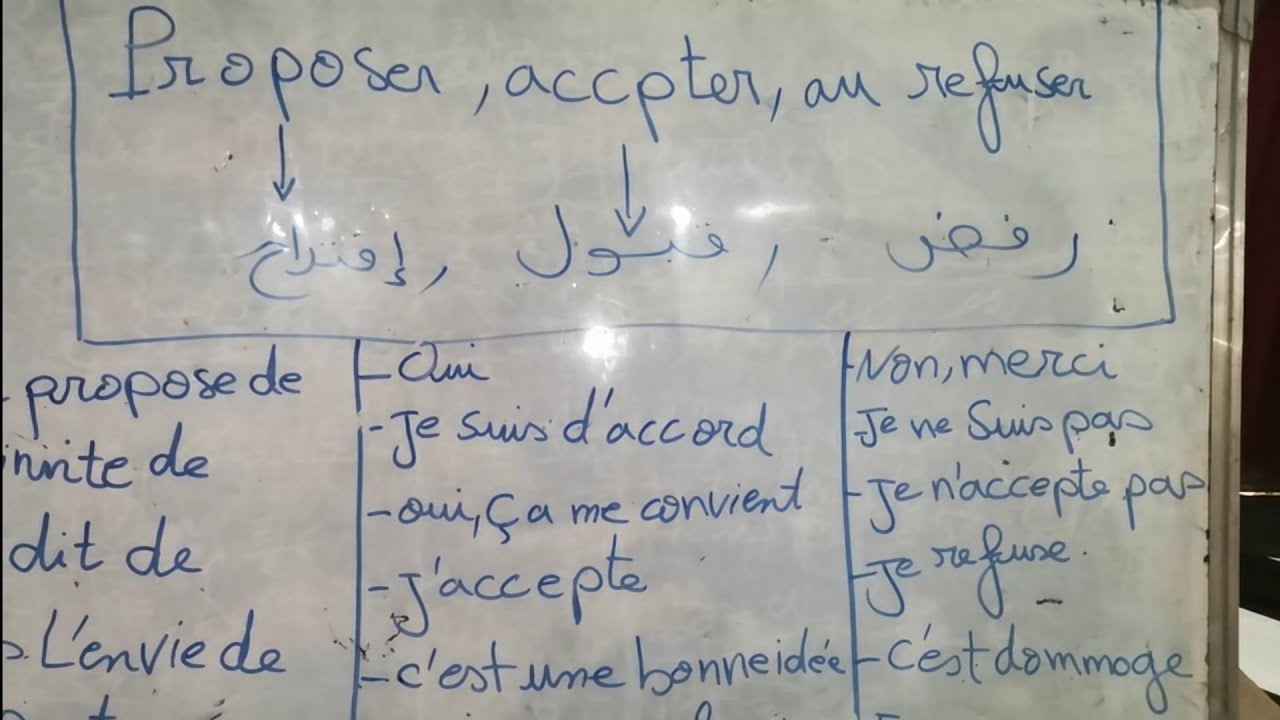 Proposer, accpter, au refuser
إقتراح, قبول, رفض
- propose de
invite de
dit de
L'envie de
- Oui
- Je suis d'accord
- oui, ça me convient
- J'accepte
- c'est une bonne idée
- Non, merci
- Je ne Suis pas
- Je n'accepte pas
- Je refuse.
- c'est dommage